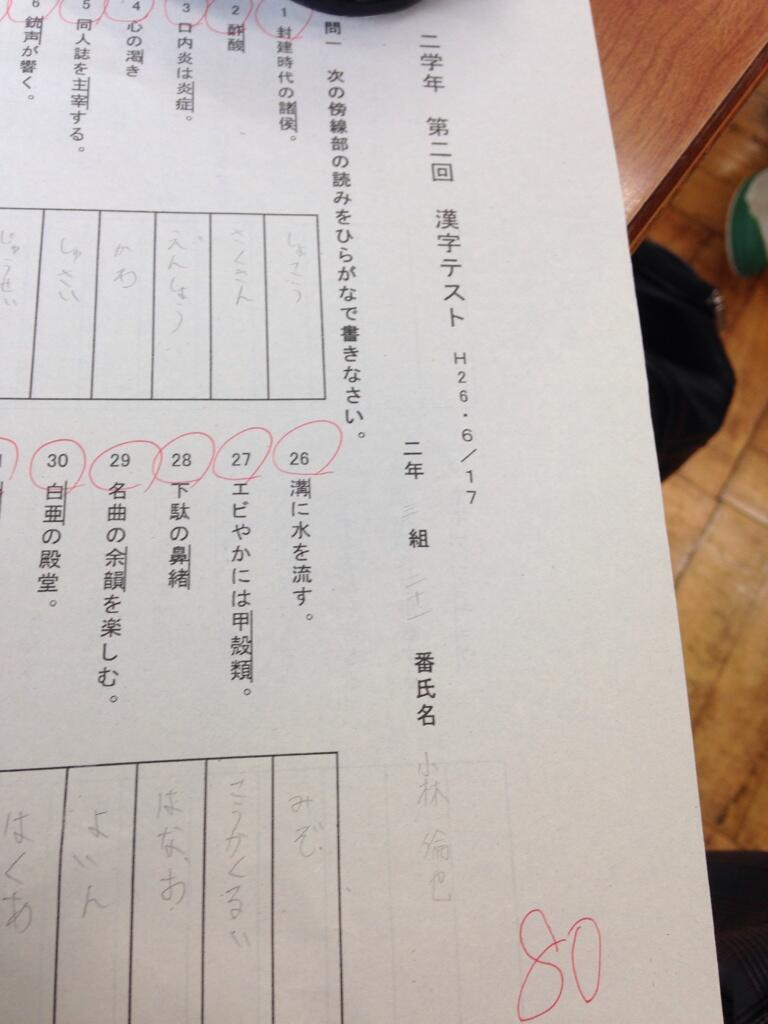 二学年　第二回　漢字テスト　H26・6／17
二年 三 組 二十一 番氏名 小林 倫也
80
問一　次の傍線部の読みをひらがなで書きなさい。
1 封建時代の諸侯。
しょこう
2 酢酸
さくさん
3 口内炎は炎症。
えんしょう
4 心の渇き
かわ
5 同人誌を主宰する。
しゅさい
6 銃声が響く。
じゅうせい
26 溝に水を流す。
みぞ
27 エビやかには甲殻類。
こうかくるい
28 下駄の鼻緒
はなお
29 名曲の余韻を楽しむ。
よいん
30 白亜の殿堂。
はくあ